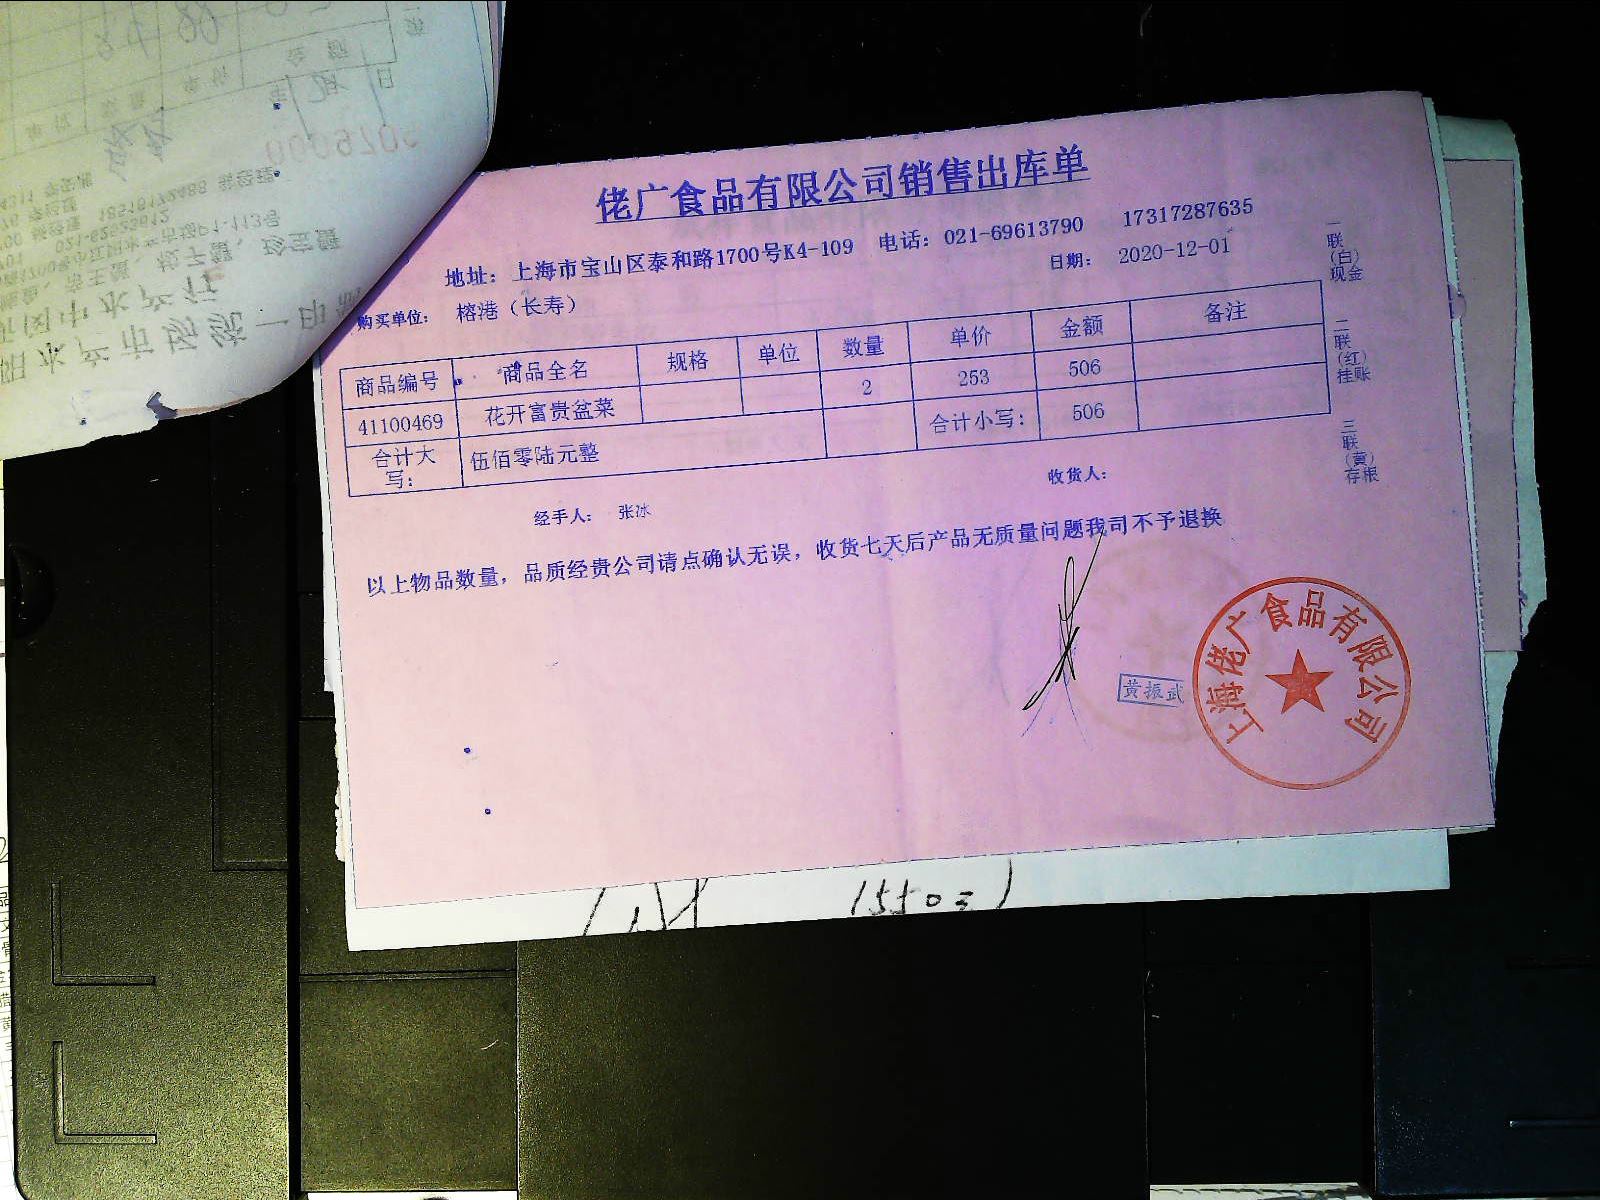 佬广食品有限公司销售出库单
地址：上海市宝山区泰和路1700号K4-109 电话：021-69613790 17317287635
购买单位： 榕港（长寿） 日期： 2020-12-01
商品编号 商品全名 规格 单位 数量 单价 金额 备注
41100469 花开富贵盆菜 2 253 506
合计大写： 伍佰零陆元整 合计小写： 506
经手人： 张冰 收货人：
以上物品数量，品质经贵公司请点确认无误，收货七天后产品无质量问题我司不予退换
一联（白）现金
二联（红）挂账
三联（黄）存根
黄振武
上海佬广食品有限公司
15503